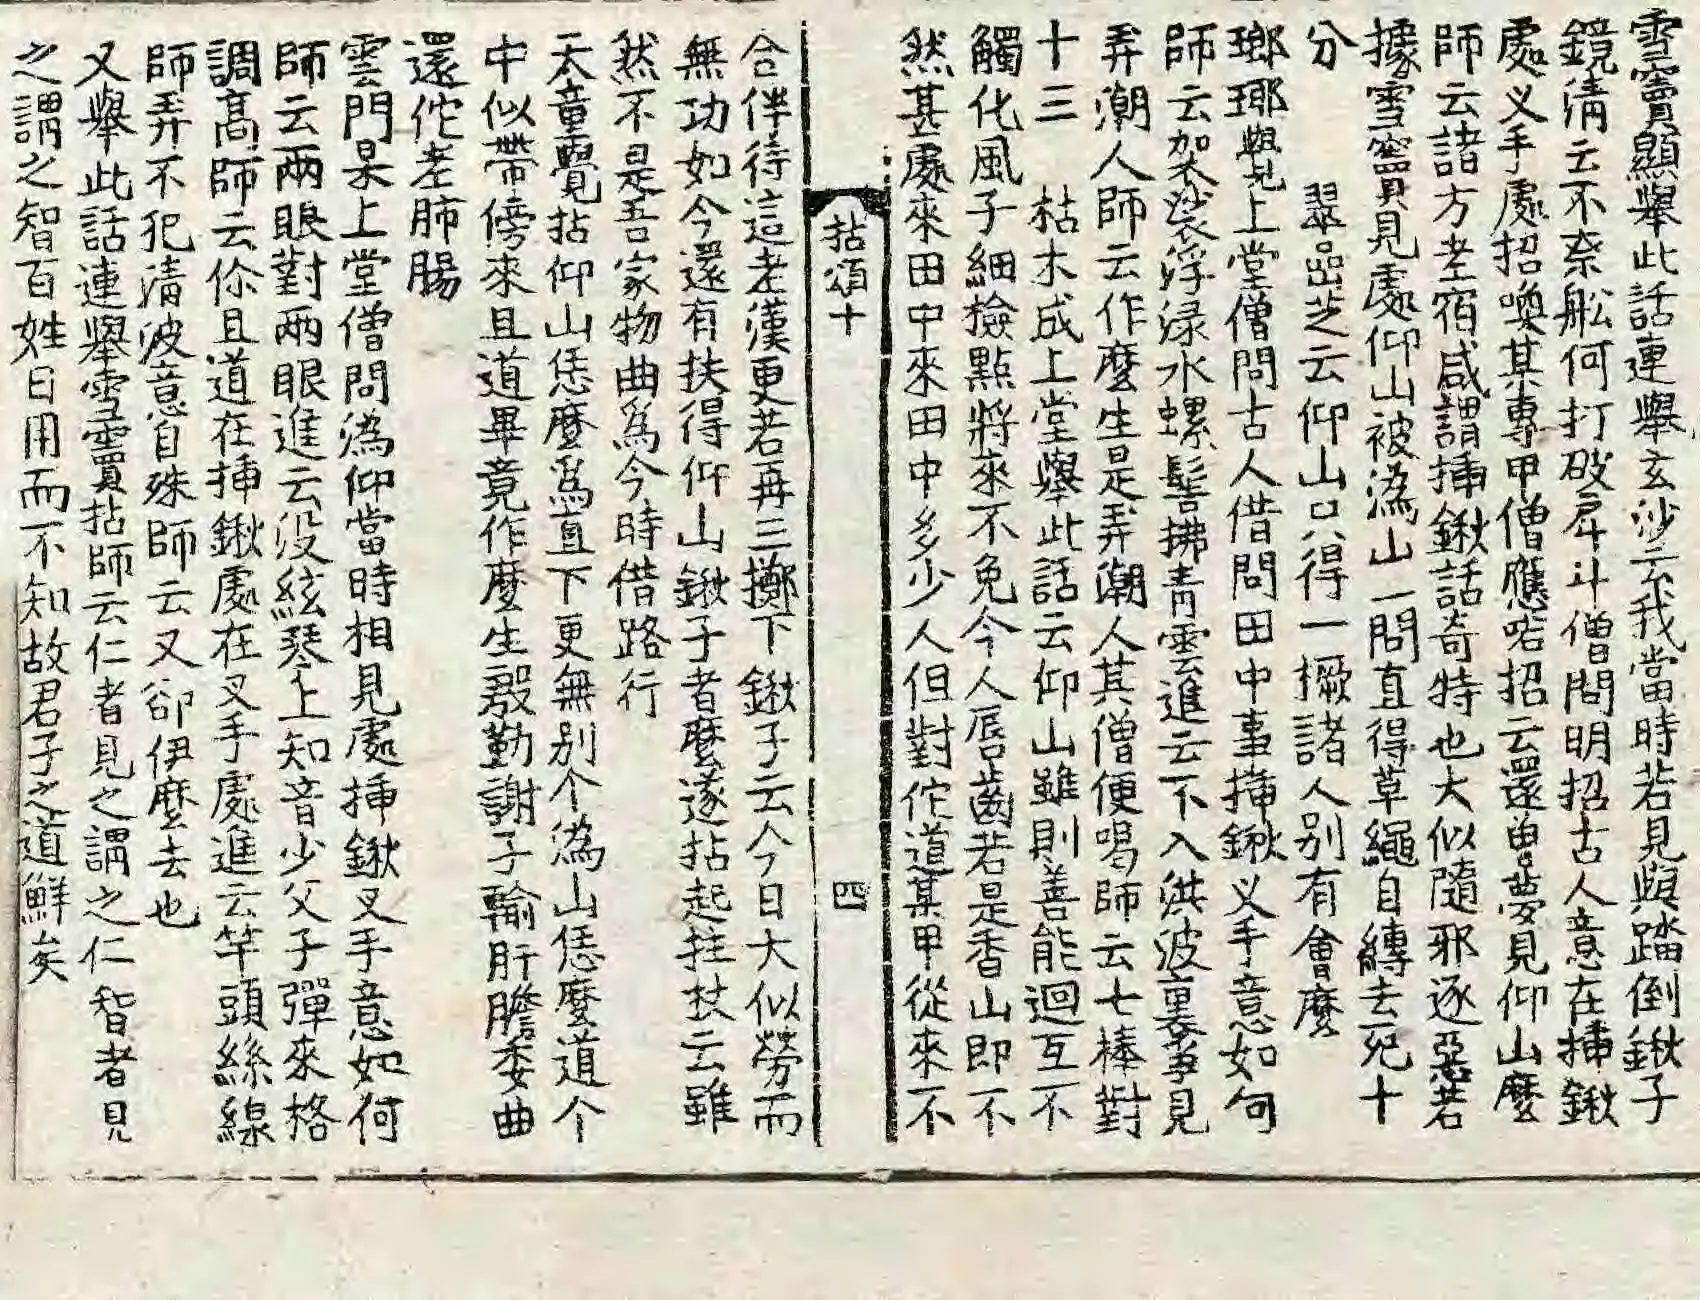 雪竇顯擧此話連擧玄沙云我當時若見與踏倒鍬子
鏡淸云不奈船何打破戽斗僧問明招古人意在揷鍬
處叉手處招喚其專甲僧應喏招云還曽夢見仰山麽
師云諸方老宿咸謂揷鍬話奇特也大似隨邪逐惡若
據雪竇見處仰山被潙山一問直得草繩自縳去死十
分　翠嵓芝云仰山只得一撅諸人别有會麽
瑯瑘覺上堂僧問古人借問田中事揷鍬叉手意如何
師云袈裟浮渌水螺髻拂靑雲進云下入洪波裏爭見
弄潮人師云作麽生是弄潮人其僧便喝師云七棒對
十三　枯木成上堂擧此話云仰山雖則善能迴互不
觸化風子細檢點將來不免令人唇齒若是香山即不
然甚處來田中來田中多少人但對佗道某甲從來不
拈頌十
四
合伴待這老漢更若再三擲下鍬子云今日大似勞而
無功如今還有扶得仰山鍬子者麽遂拈起拄杖云雖
然不是吾家物曲爲今時借路行
天童覺拈仰山恁麽爲直下更無别个潙山恁麽道个
中似帶傍來且道畢竟作麽生慇懃謝子輸肝膽委曲
還佗老肺腸
雲門杲上堂僧問潙仰當時相見處揷鍬叉手意如何
師云兩眼對兩眼進云没絃琴上知音少父子彈來格
調高師云伱且道在揷鍬處在叉手處進云竿頭絲線
師弄不犯淸波意自殊師云又卻伊麽去也
又擧此話連擧雪竇拈師云仁者見之謂之仁智者見
之謂之智百姓日用而不知故君子之道鮮矣